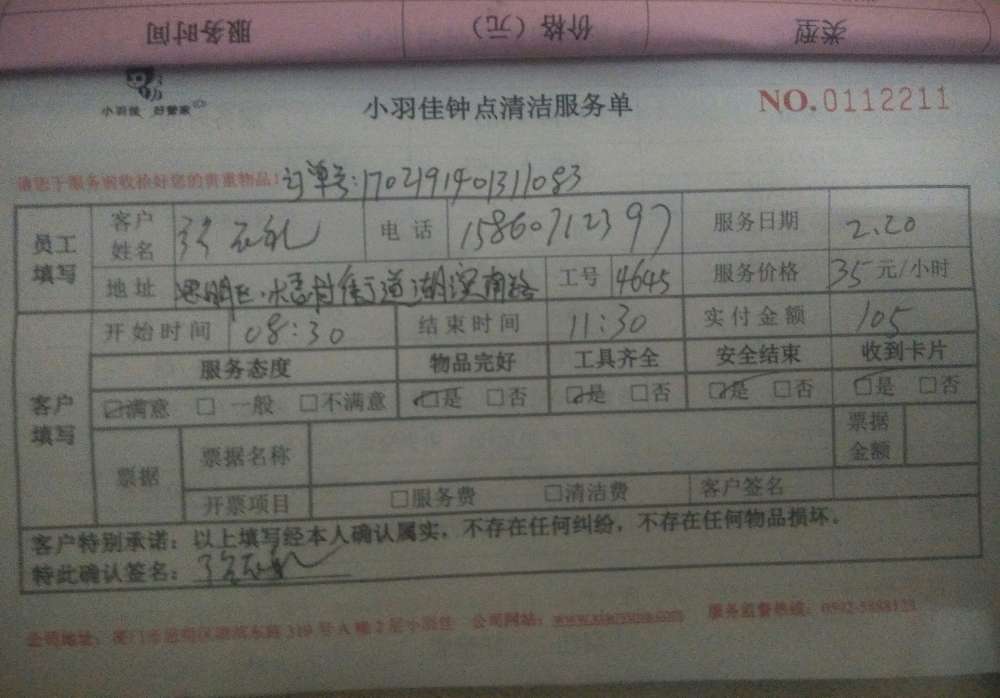 服务时间 价格（元） 类型
小羽佳 好管家
小羽佳钟点清洁服务单
NO.0112211
请您于服务前收拾好您的贵重物品! 订单号:1702191401311083
员工填写 客户姓名 电话 15860712397 服务日期 2.20
地址 思明区 街道湖滨南路 工号 4645 服务价格 35元/小时
开始时间 08:30 结束时间 11:30 实付金额 105
服务态度 物品完好 工具齐全 安全结束 收到卡片
客户填写 ☑满意 □一般 □不满意 ☑是 □否 ☑是 □否 ☑是 □否 ☑是 □否
票据 票据名称 票据金额
开票项目 □服务费 □清洁费 客户签名
客户特别承诺：以上填写经本人确认属实，不存在任何纠纷，不存在任何物品损坏。
特此确认签名：
公司地址：厦门市思明区湖滨东路319号A幢2层小羽佳 公司网站： 服务监督热线：